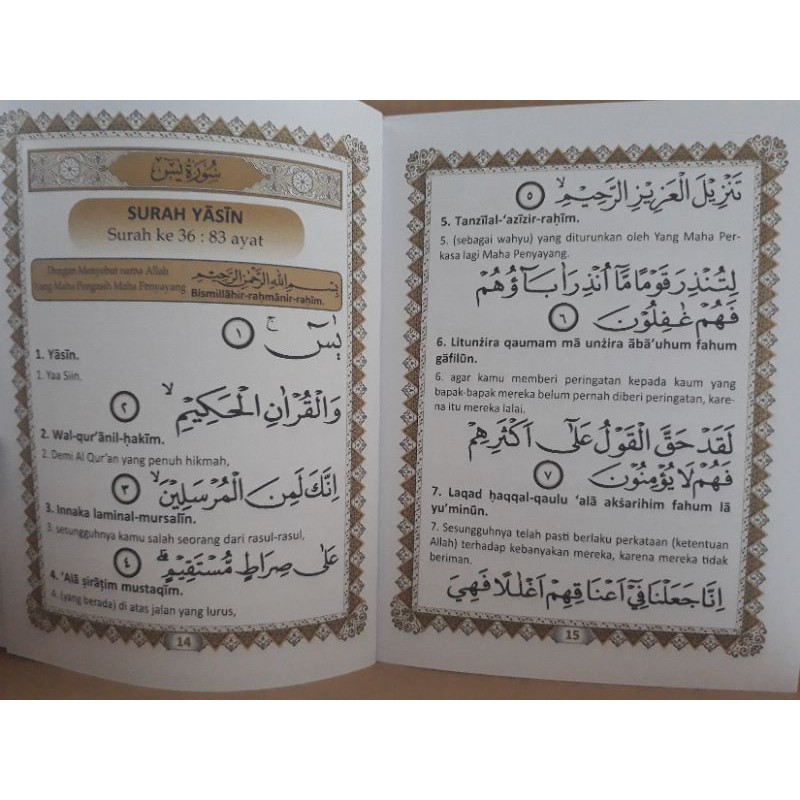 سُوْرَةُ يٰسٓ
SURAH YĀSĪN
Surah ke 36 : 83 ayat
Dengan Menyebut nama Allah
Yang Maha Pengasih Maha Penyayang
بِسْمِ اللّٰهِ الرَّحْمٰنِ الرَّحِيْمِ
Bismillāhir-raḥmānir-raḥīm.
يٰسٓ ۚ ١
1. Yāsīn.
1. Yaa Siin.
وَالْقُرْاٰنِ الْحَكِيْمِۙ ٢
2. Wal-qur'ānil-ḥakīm.
2. Demi Al Qur'an yang penuh hikmah,
اِنَّكَ لَمِنَ الْمُرْسَلِيْنَۙ ٣
3. Innaka laminal-mursalīn.
3. sesungguhnya kamu salah seorang dari rasul-rasul,
عَلٰى صِرَاطٍ مُّسْتَقِيْمٍۗ ٤
4. 'Alā ṣirāṭim mustaqīm.
4. (yang berada) di atas jalan yang lurus,
14
تَنْزِيْلَ الْعَزِيْزِ الرَّحِيْمِۙ ٥
5. Tanzīlal-'azīzir-raḥīm.
5. (sebagai wahyu) yang diturunkan oleh Yang Maha Per-
kasa lagi Maha Penyayang.
لِتُنْذِرَ قَوْمًا مَّآ اُنْذِرَ اٰبَاۤؤُهُمْ
فَهُمْ غٰفِلُوْنَ ٦
6. Litunżira qaumam mā unżira ābā'uhum fahum
gāfilūn.
6. agar kamu memberi peringatan kepada kaum yang
bapak-bapak mereka belum pernah diberi peringatan, kare-
na itu mereka lalai.
لَقَدْ حَقَّ الْقَوْلُ عَلٰٓى اَكْثَرِهِمْ
فَهُمْ لَا يُؤْمِنُوْنَ ٧
7. Laqad ḥaqqal-qaulu 'alā akṡarihim fahum lā
yu'minūn.
7. Sesungguhnya telah pasti berlaku perkataan (ketentuan
Allah) terhadap kebanyakan mereka, karena mereka tidak
beriman.
اِنَّا جَعَلْنَا فِيْٓ اَعْنَاقِهِمْ اَغْلٰلًا فَهِيَ
15